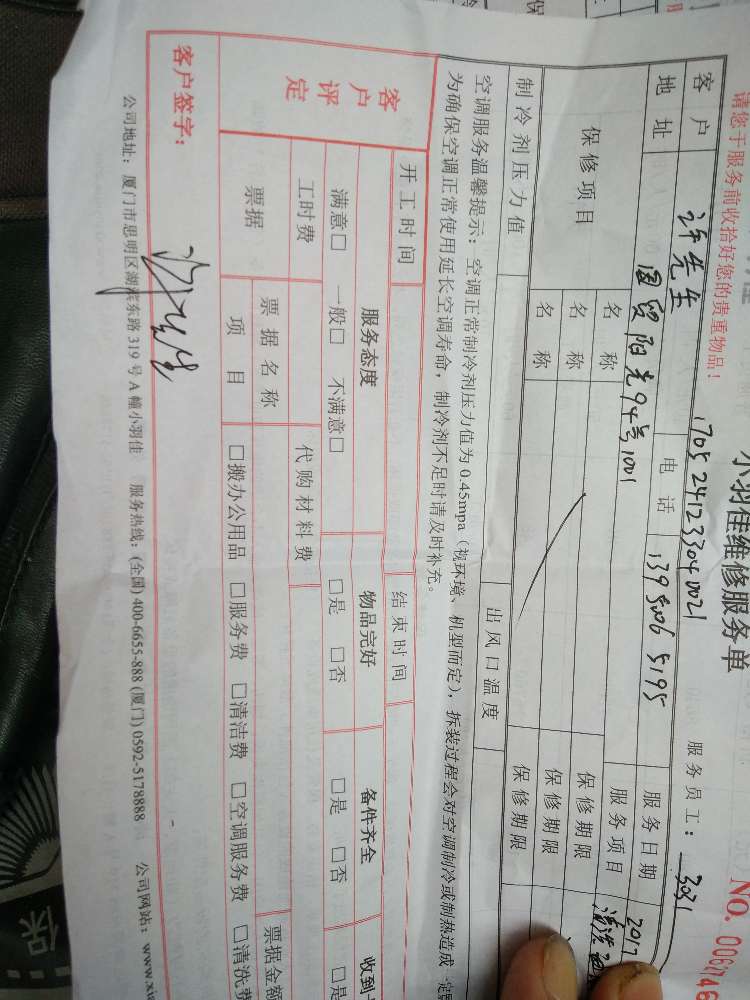 请您于服务前收拾好您的贵重物品！
小羽佳维修服务单
NO. 0061746
1705241233040021
服务员工： 3031
客户 许先生 电话 139 5006 5195 服务日期 2017
地址 国贸阳光94号1001 服务项目 清洗
保修项目 名称 保修期限
名称 保修期限
名称 保修期限
制冷剂压力值 出风口温度
空调服务温馨提示：空调正常制冷剂压力值为0.45mpa（视环境、机型而定），拆装过程会对空调制冷或制热造成一定
为确保空调正常使用延长空调寿命，制冷剂不足时请及时补充。
开工时间 结束时间
客户评定 服务态度 物品完好 备件齐全 收到
满意□ 一般□ 不满意□ □是 □否 □是 □否 □是
工时费 代购材料费
票据 票据名称 票据金额
项目 □搬办公用品 □服务费 □清洁费 □空调服务费 □清洗费
客户签字： 许先生
公司地址：厦门市思明区湖滨东路319号A幢小羽佳 服务热线：(全国) 400-6655-888 (厦门) 0592-5178888 公司网站：www.xi
保